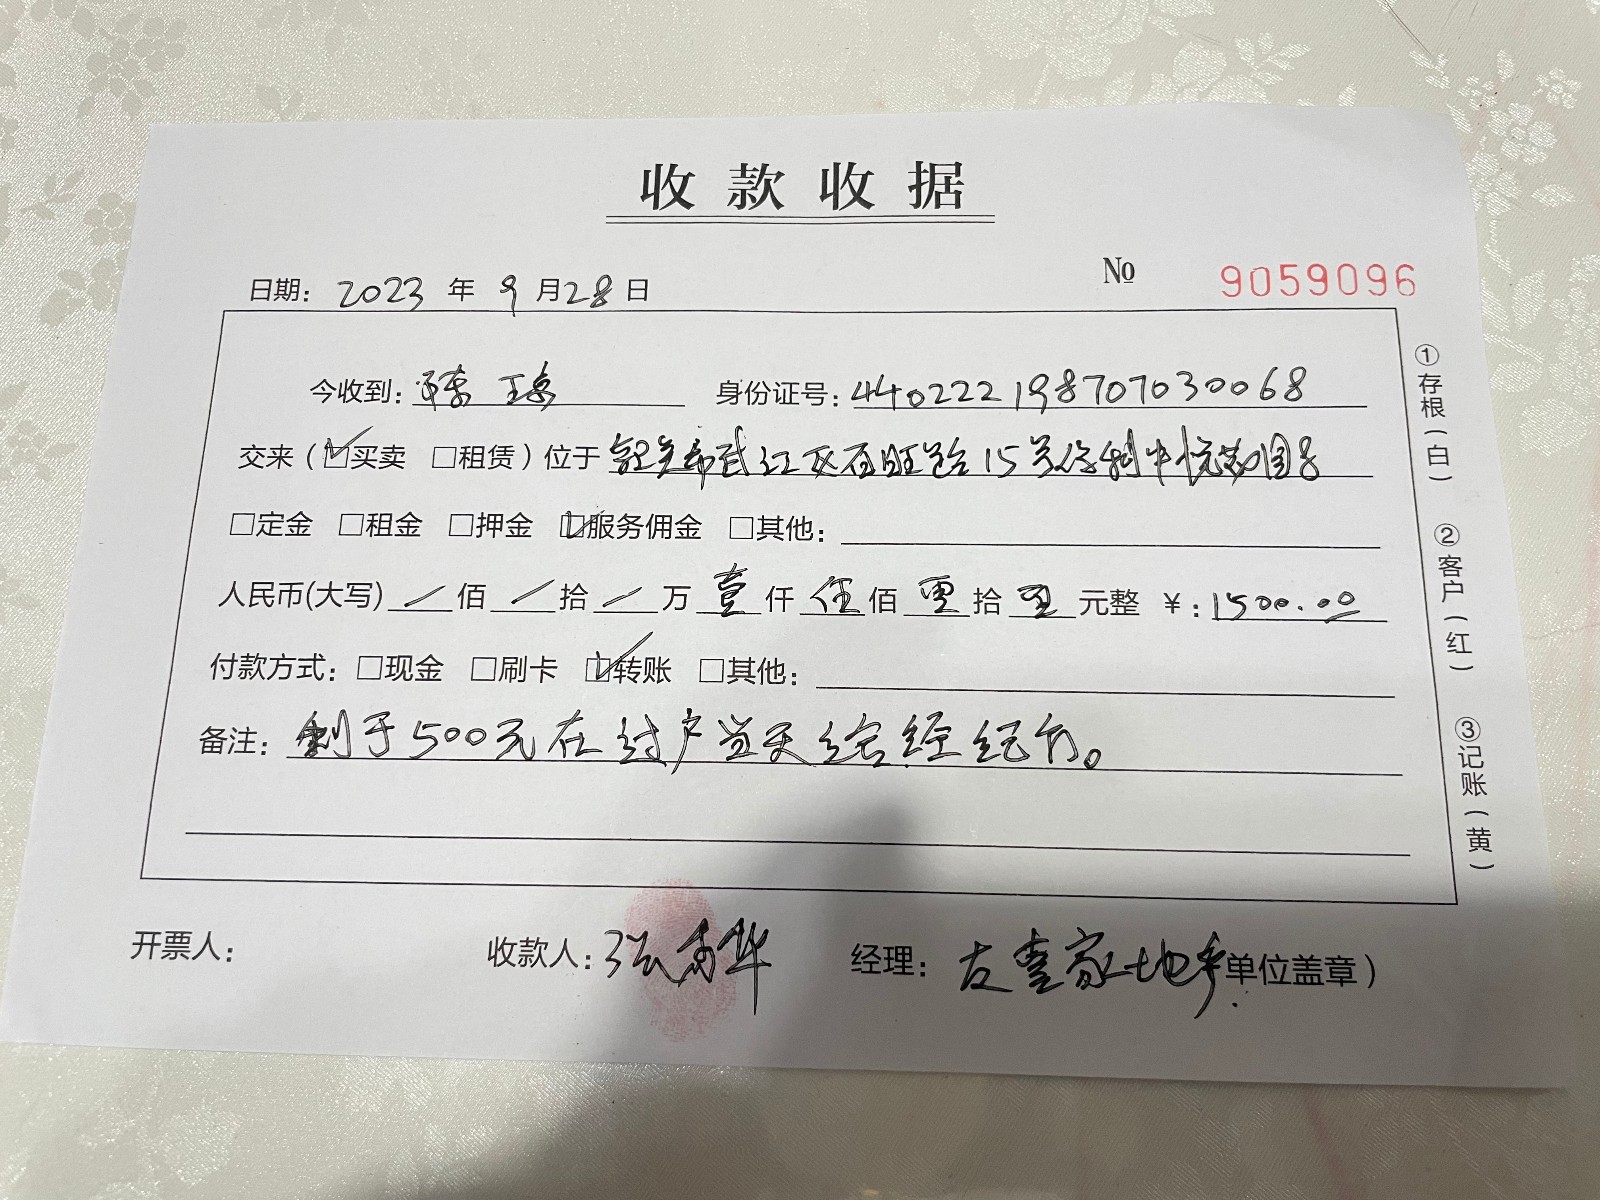 收款收据
日期: 2023 年 9 月 28 日 № 9059096
今收到: 陈 身份证号: 440222198707030068
交来 (☑买卖 □租赁) 位于 韶关市武江区百旺路15号保利中悦花园
□定金 □租金 □押金 ☑服务佣金 □其他:
人民币(大写) / 佰 / 拾 / 万 壹 仟 伍 佰 零 拾 零 元整 ¥: 1500.00
付款方式: □现金 □刷卡 ☑转账 □其他:
备注: 剩于500元在过户当天给经纪方。
开票人: 收款人: 张 华 经理: 友壹家地产 单位盖章)
①存根(白)
②客户(红)
③记账(黄)